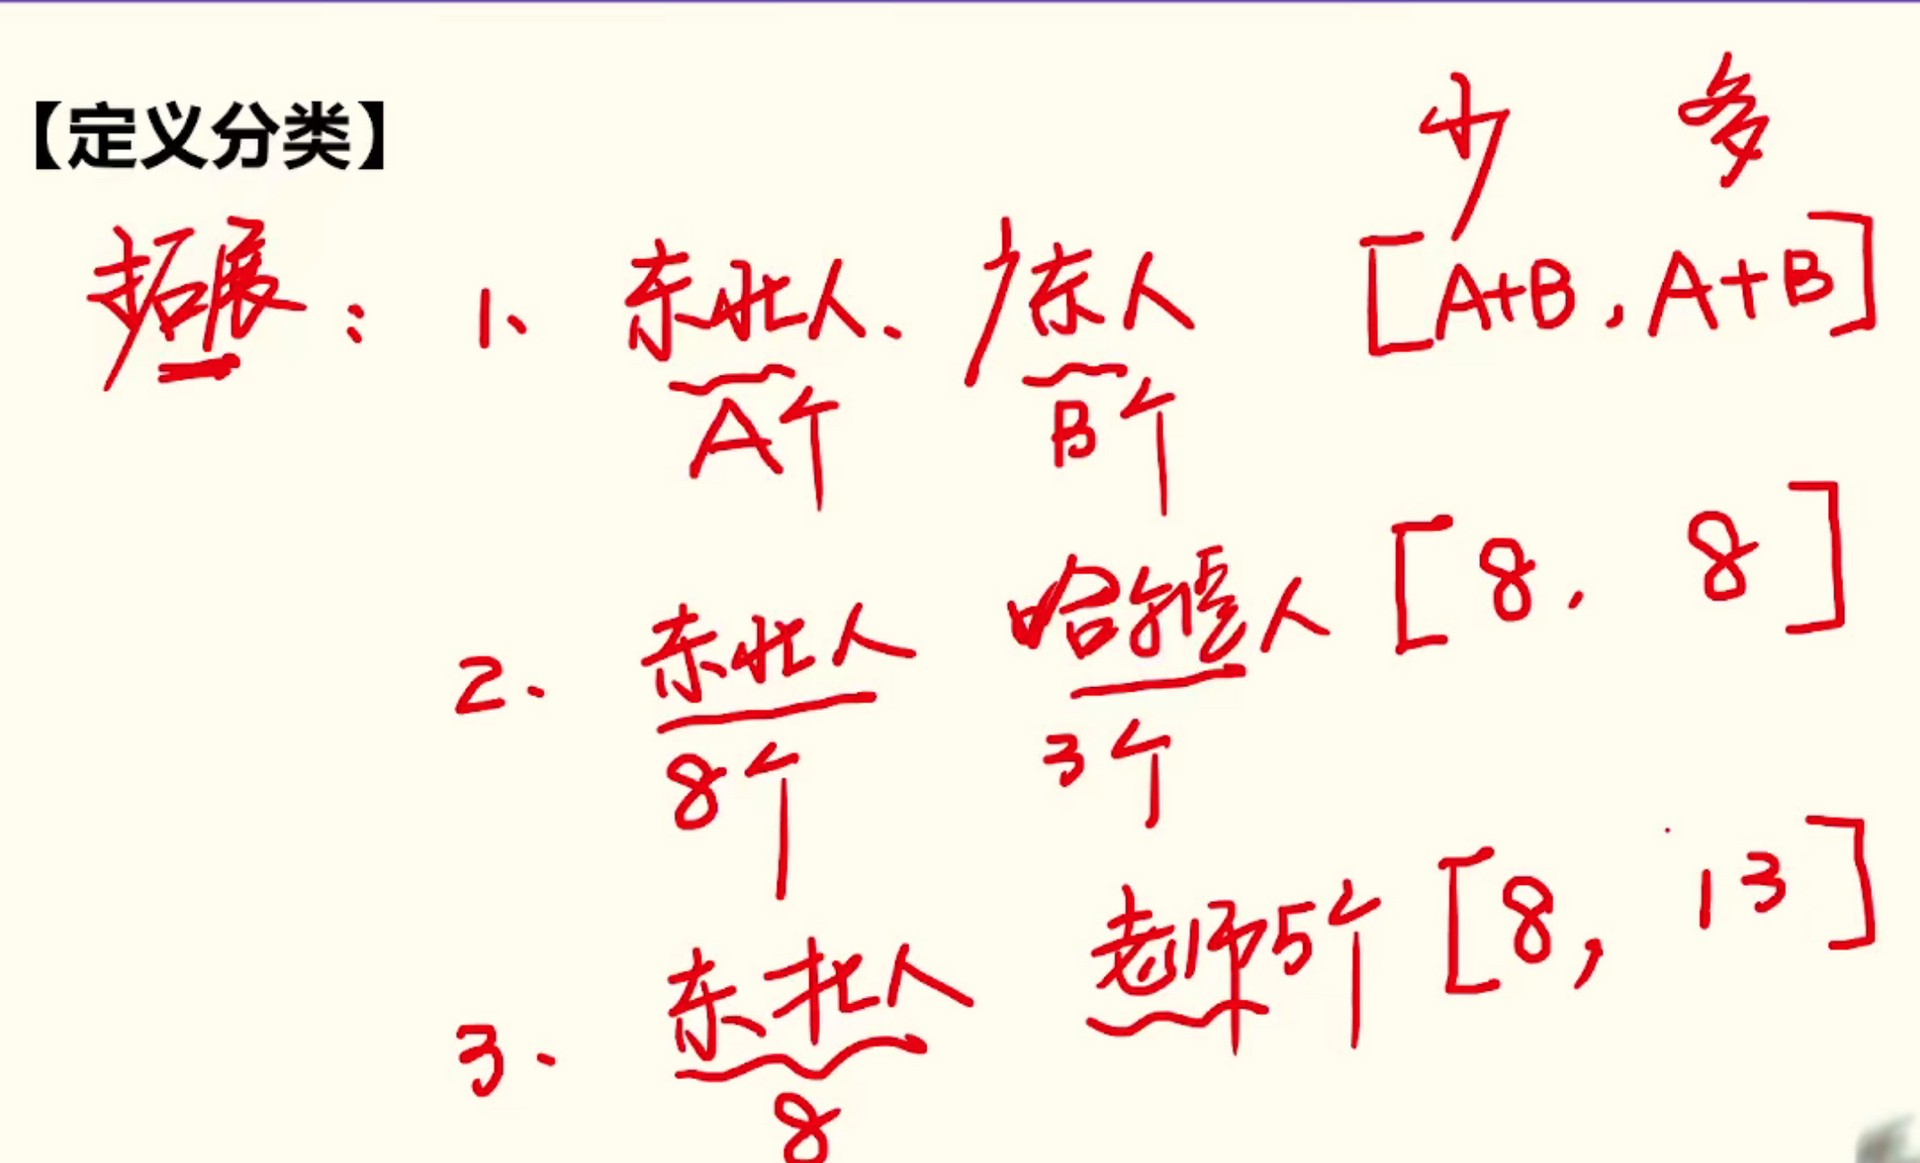 【定义分类】
少 多
拓展： 1、 东北人、 广东人 [A+B, A+B]
A个 B个
2. 东北人 哈尔滨人 [8, 8]
8个 3个
3. 东北人 老师5个 [8, 13]
8